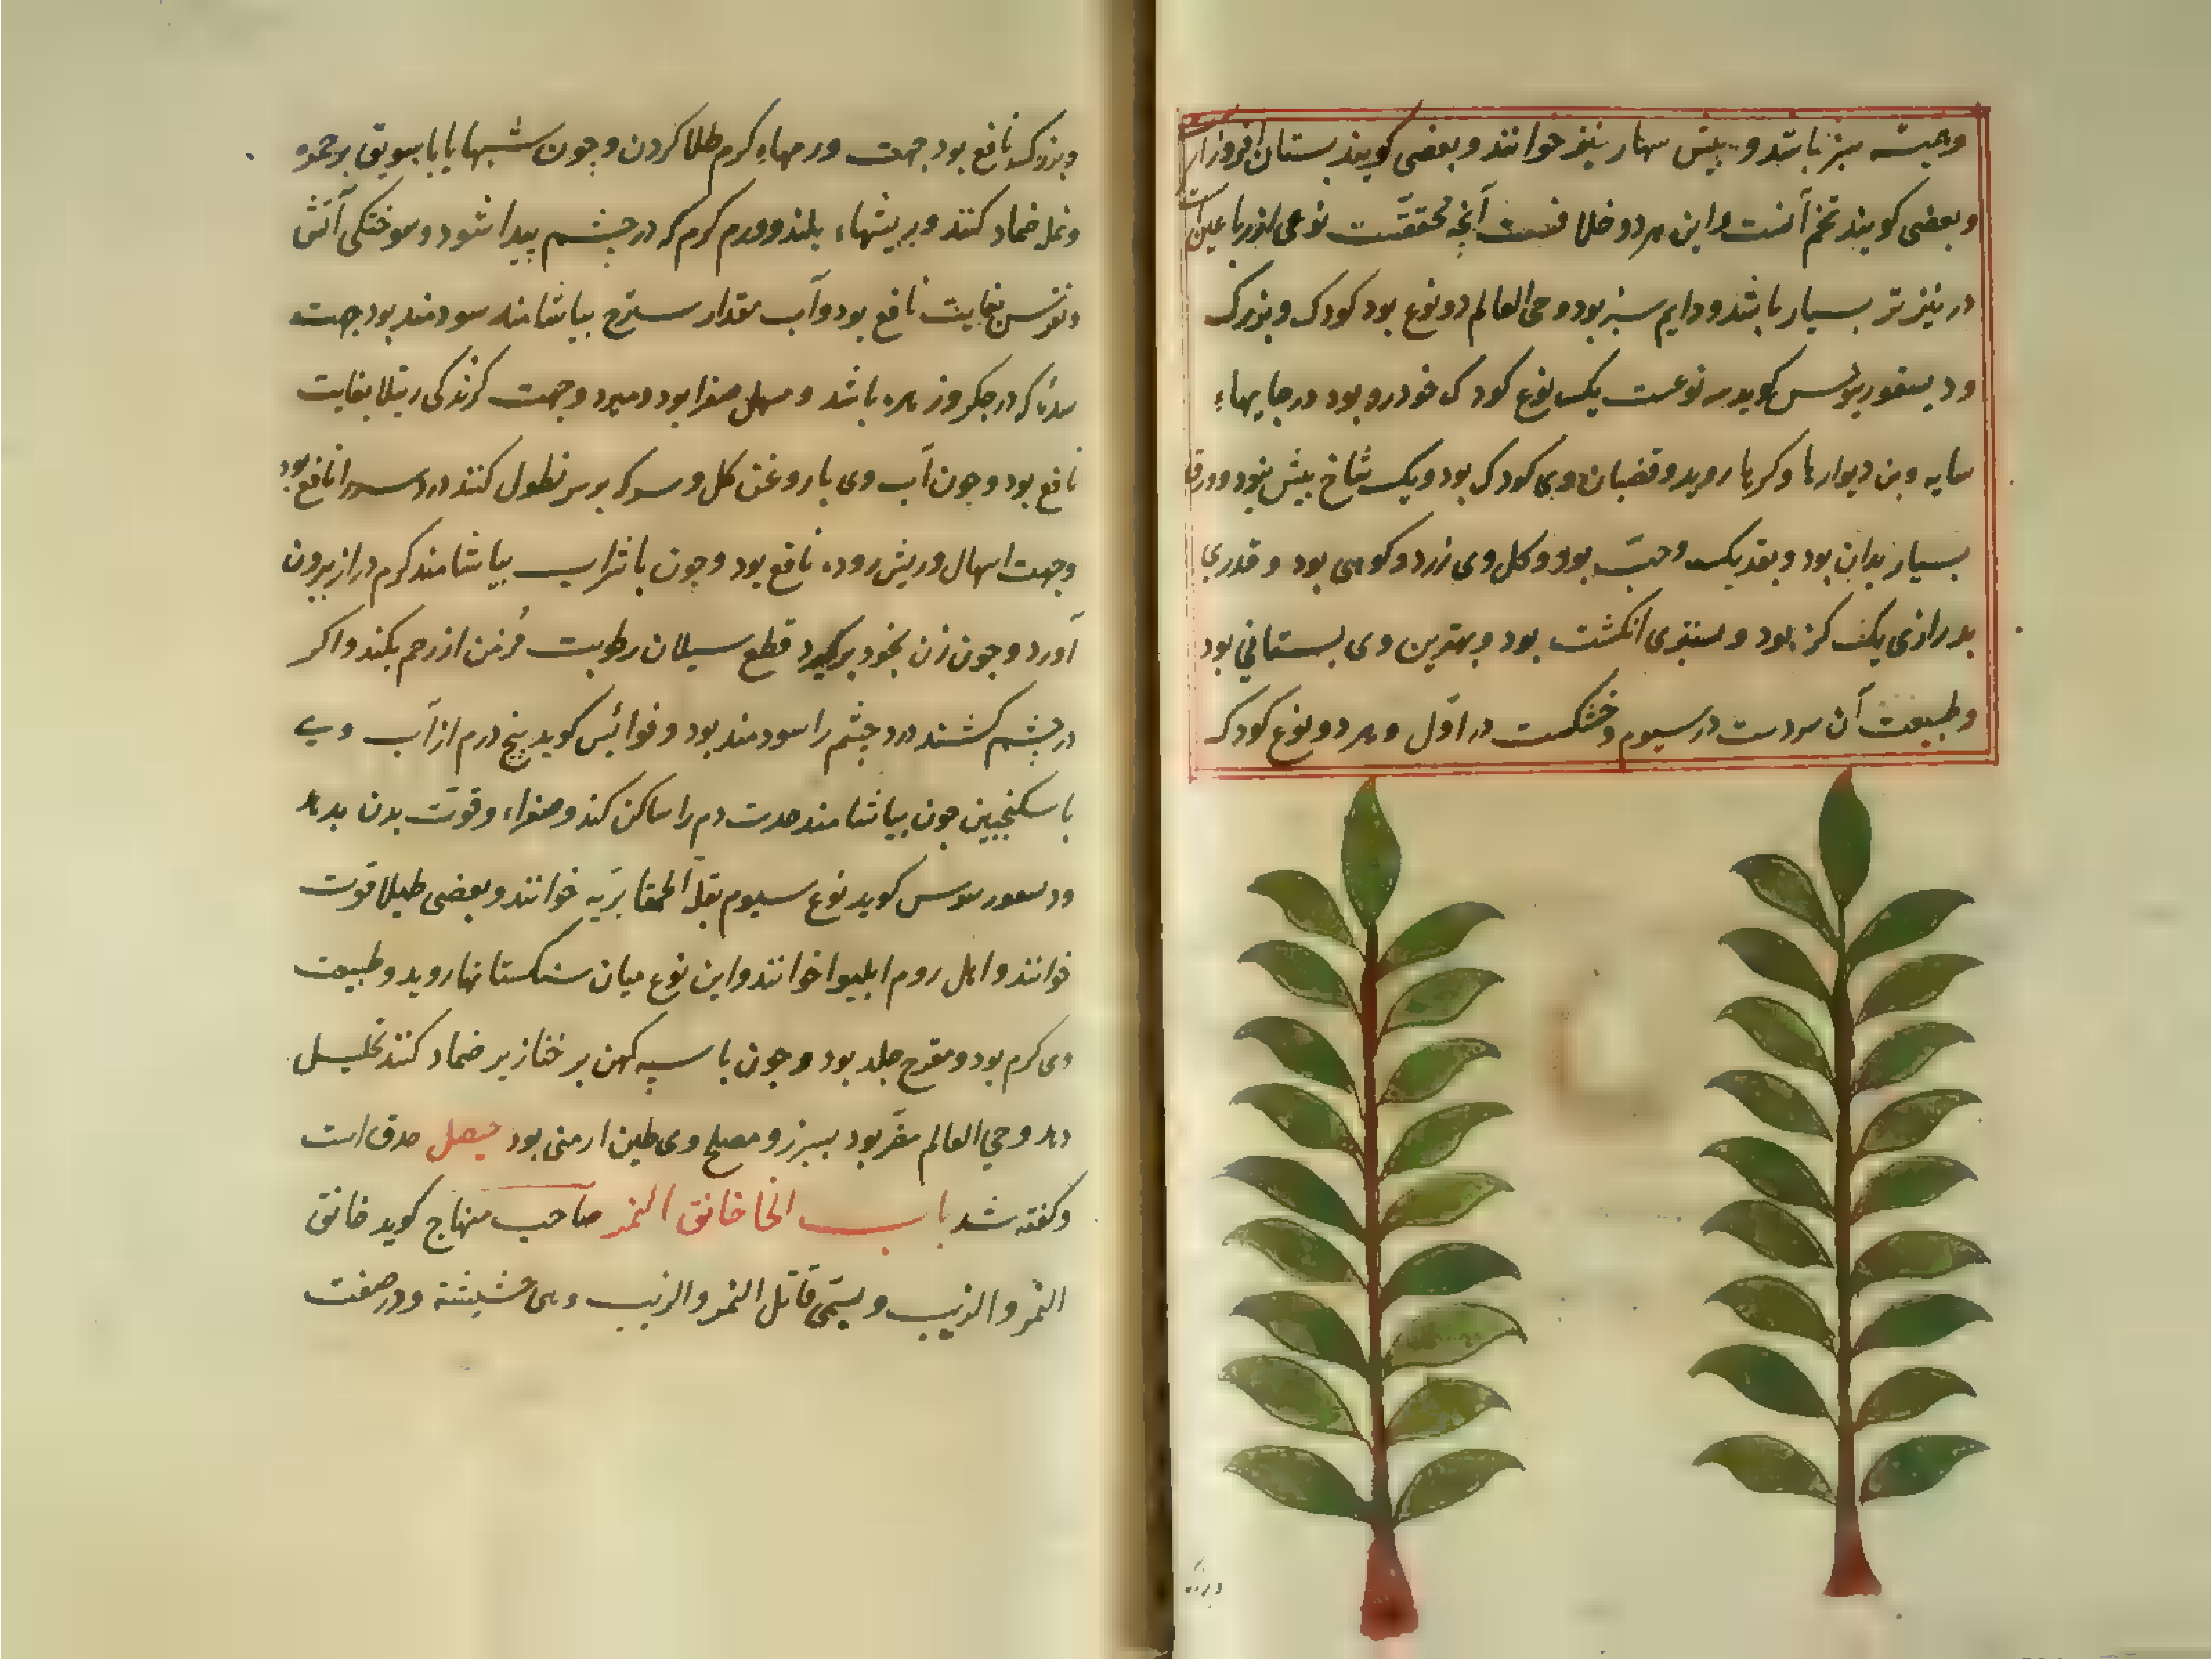 وهمیشه سبز باشد و بیش بهار نیز خوانند و بعضی کویند بستان افروز است
و بعضی کویند تخم آنست و این هر دو خلافست آنچه محققست نوعی از ریاحین است
در نیز تر بسیار باشد و دایم سبز بود و حی العالم دو نوع بود کودک و بزرک
و دیسقوریدوس کوید سه نوعست یک نوع کودک خودرو بود در جایهاء
سایه و بن دیوارها و کرها روید و قضبان وی کودک بود و یک شاخ بیش نبود و ورق
بسیار بدان بود و بقد یک حب بود و کل وی زرد و کوهی بود و قدری
بدرازی یک کز بود و سبتری انکشت بود و بهترین وی بستانی بود
و طبیعت آن سردست در سیوم و خشکست در اول و هر دو نوع کودک
و بزرک نافع بود جهت ورمهاء کرم طلا کردن و چون شبها یا با سویق بر حمره
و نمله ضماد کنند و بریشهاء بلند و ورم کرم که در چشم پیدا شود و سوختکی آتش
و نقرس بغایت نافع بود و آب مقدار بیاشامند سودمند بود جهت
سده که در جکر و زهره باشد و مسهل صفرا بود و مبرد و جهت کزندکی رتیلا بغایت
نافع بود و چون آب وی با روغن کل و سرکه بر سر نطول کنند درد سر را نافع بود
و جهت اسهال و ریش روده نافع بود و چون با شراب بیاشامند کرم دراز بیرون
آورد و چون زن بخود برکیرد قطع سیلان رطوبت مزمن از رحم بکند و اکر
در چشم کشند درد چشم را سودمند بود و فوائیس کوید پنج درم از آب وی
با سکنجبین چون بیاشامند حدت دم را ساکن کند و صفراء و قوت بدن بدهد
و دیسقوریدوس کوید نوع سیوم بقلة الحمقا بریه خوانند و بعضی طیلاقوت
خوانند و اهل روم ابلیوا خوانند و این نوع میان سنکستانها روید و طبیعت
وی کرم بود و مقرح جلد بود و چون با پیه کهن بر خنازیر ضماد کنند تحلیل
دهد و حی العالم مضر بود بسپرز و مصلح وی طین ارمنی بود حیصل حدق است
و کفته شد باب الخا خانق النمر صاحب منهاج کوید خانق
النمر و الذیب و یسمی قاتل النمر و الذیب و هی حشیشة و در صفت